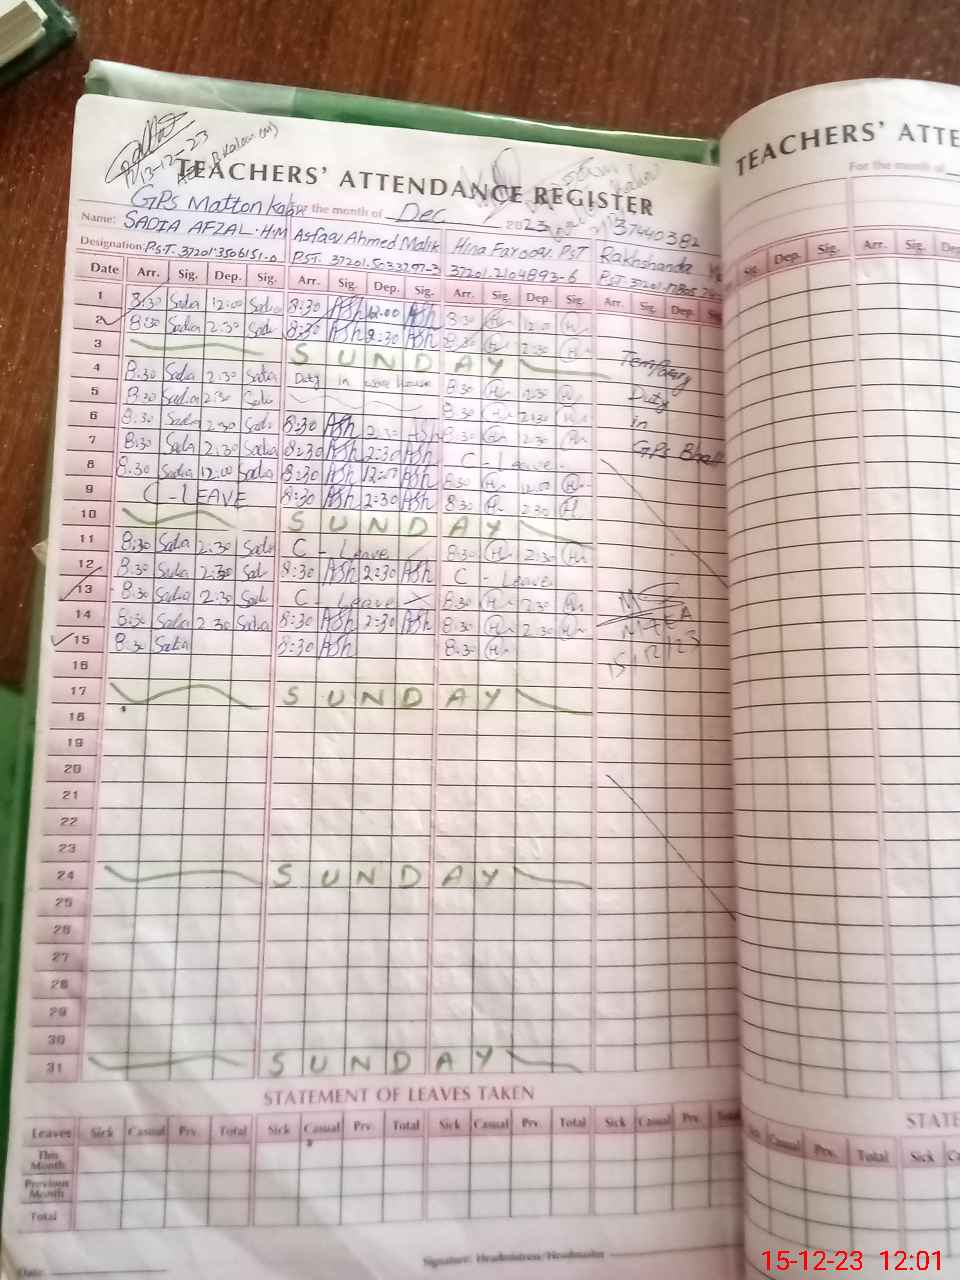 13-12-23
TEACHERS' ATTENDANCE REGISTER
TEACHERS' ATTE
GPS Matton Kalan For the month of Dec 2023
For the month of
37440382
Name: SADIA AFZAL. HM Asfaq Ahmed Malik Hina Farooq. PST Rakhshanda
Designation: P.S.T. 37201.3506151-0 PST. 37201.5033297-3 37201.2104893-6 PST.
Date Arr. Sig. Dep. Sig. Arr. Sig. Dep. Sig. Arr. Sig. Dep. Sig. Arr. Sig. Dep. Sig.
Sig. Dep. Sig. Arr. Sig. Dep
1 8:30 Sadia 12:00 Sadia 8:30 Ash 12.00 Ash 8:30 H 12:00 H
2 8:30 Sadia 2:30 Sadi 8:30 Ash 2:30 Ash 8:30 H 2:30 H
3 SUNDAY
4 8:30 Sadia 2:30 Sadia Duty in ware house 8:30 H 2:30 H
5 8:30 Sadia 2:30 Sadi 8:30 H 2:30 H
6 8:30 Sadia 2:30 Sadi 8:30 Ash 2:30 Ash 8:30 H 2:30 H
7 8:30 Sadia 2:30 Sadia 8:30 Ash 2:30 Ash C - Leave
8 8:30 Sadia 12:00 Sadia 8:30 Ash 12:00 Ash 8:30 H 12:00 H
9 C-LEAVE 8:30 Ash 2:30 Ash 8:30 H 2:30 H
10 SUNDAY
11 8:30 Sadia 2:30 Sadi C - Leave 8:30 H 2:30 H
12 8:30 Sadia 2:30 Sad 8:30 Ash 2:30 Ash C - Leave
13 8:30 Sadia 2:30 Sad C - Leave 8:30 H 2:30 H
14 8:30 Sadia 2:30 Sadia 8:30 Ash 2:30 Ash 8:30 H 2:30 H
15 8:30 Sadia 8:30 Ash 8:30 H
Temporary
Duty
in
GPS
MEA
15/12/23
16
17 SUNDAY
18
19
20
21
22
23
24 SUNDAY
25
26
27
28
29
30
31 SUNDAY
STATEMENT OF LEAVES TAKEN
STATE
Leaves Sick Casual Prv. Total Sick Casual Prv. Total Sick Casual Prv. Total Sick Casual Prv. Total
Casual Prv. Total Sick
This Month
Previous Month
Total
Signature: Headmistress/Headmaster
Date:
15-12-23 12:01